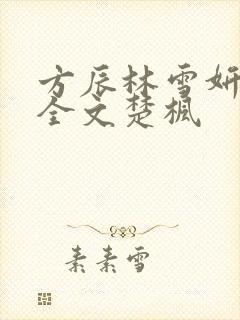 方辰林雪妍
全文楚枫
素素雪